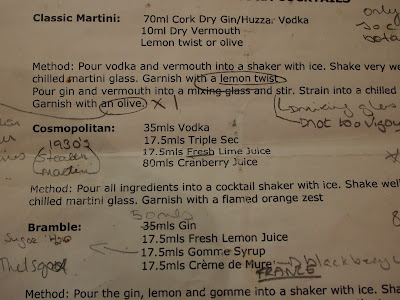 COCKTAILS
only
Classic Martini: 70ml Cork Dry Gin/Huzza. Vodka
10ml Dry Vermouth
Lemon twist or olive
Method: Pour vodka and vermouth into a shaker with ice. Shake very we
chilled martini glass. Garnish with a lemon twist
Pour gin and vermouth into a mixing glass and stir. Strain into a chilled
Garnish with an olive. X 1
mixing glass
not too vigor
Cosmopolitan: 35mls Vodka
1930's 17.5mls Triple Sec
17.5mls Fresh Lime Juice
80mls Cranberry Juice
Method: Pour all ingredients into a cocktail shaker with ice. Shake well
chilled martini glass. Garnish with a flamed orange zest
50mls
Bramble: 35mls Gin
17.5mls Fresh Lemon Juice
17.5mls Gomme Syrup
17.5mls Crème de Mure blackberry
FRANCE
Method: Pour the gin, lemon and gomme into a shaker with ice. Sha